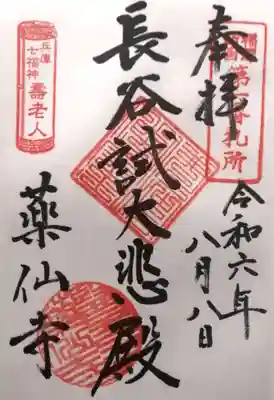 奉拝
第
番札所
令和六年
八月八日
長谷試大悲殿
兵庫
七福神
壽老人
薬仙寺